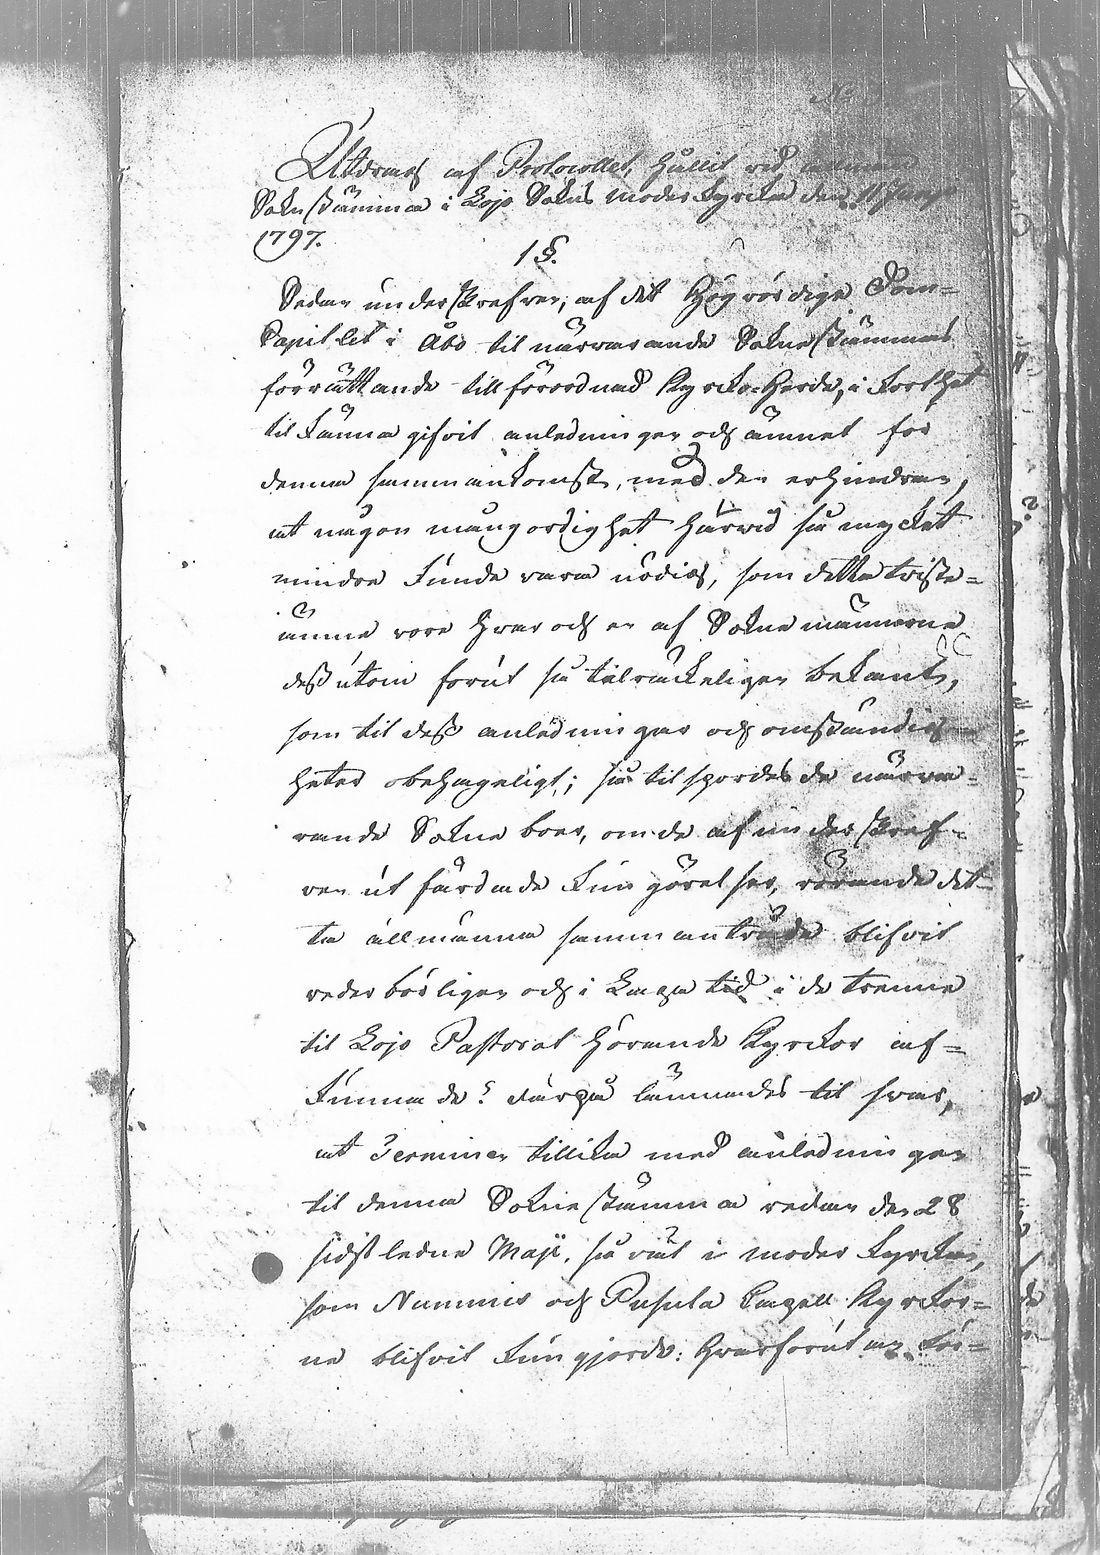 Utdrag af Protocollet, hållit vid allmän
Sokne stämma i Lojo Sokns Moder kyrcka den 11 Junii
1797.
1 §.
Sedan underskrefven, af det Högvördige Dom-
Capitlet i Åbo til närvarande Sokne stämmas
förrättande tillförordnad Kyrcko-Herde, i korthet
til känna gifvit anledningen och ämnet för
denna sammankomst, med den erhindran,
at någon mångordighet härwid så mycket
mindre kunde vara nödig, som detta triste-
ämne vore hvar och en af Sokne männerne
dess utom förut så tilräckeligen bekant,
som til dess anledningar och omständig-
heter obehageligt; så tilspordes de närva-
rande Sokne boer, om de af underskref-
ven utfärdade kungörelser, rörande det-
ta allmänna sammanträde blifvit
vederbörligen och i laga tid i de trenne
til Lojo Pastorat hörande Kyrckor af-
kunnade? Därpå lämnades til svar,
at Terminen tillika med anledningen
til denna Soknestämma redan den 28
sidstledne Maji, så väl i moder kyrckan,
som Nummis och Pusula Capell Kyrckor-
ne blifvit kungjorde: Hvarförutan för-